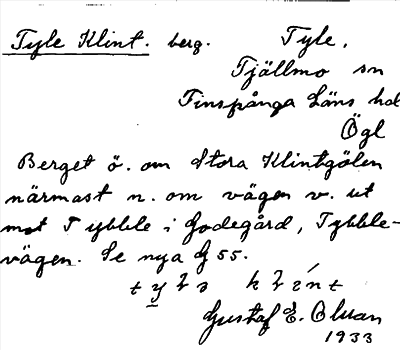 Tyle Klint. berg. Tyle,
Tjällmo sn
Finspånga Läns hd
Ögl
Berget ö. om Stora Klintgölen
närmast n. om vägen v. ut
mot Tybble i Godegård, Tybble-
vägen. Se nya G 55.
Gustaf E. Olsson
1933